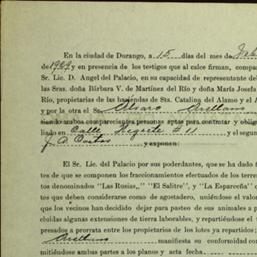 En la ciudad de Durango, a 15 días del mes de
de 1924 y en presencia de los testigos que al calce firman, compar
Sr. Lic. D. Angel del Palacio, en su capacidad de representante del
las Sras. doña Bárbara V. de Martínez del Río y doña María Josefa
Río, propietarias de las haciendas de Sta. Catalina del Alamo y el A
y por la otra el Sr. Alvaro Arellano
siendo ambos comparecientes personas aptas para contratar y oblig
liado en Calle Negrete # 11 y el segun
y exponen:
El Sr. Lic. del Palacio por sus poderdantes, que se ha dado
tes de que se componen los fraccionamientos efectuados de los terre
tos denominados "Las Rusias," "El Salitre", y "La Esparceña"
tes que deben considerarse como de agostadero, uniéndose el valor
que los vecinos han decidido dejar para pastos de sus animales a p
cluidas algunas extensiones de tierra laborables, y repartiéndose el
presados a prorrata entre los propietarios de los lotes ya repartidos;
Arellano manifiesta su conformidad con
mitiendo ambas partes a los planes y acta fecha